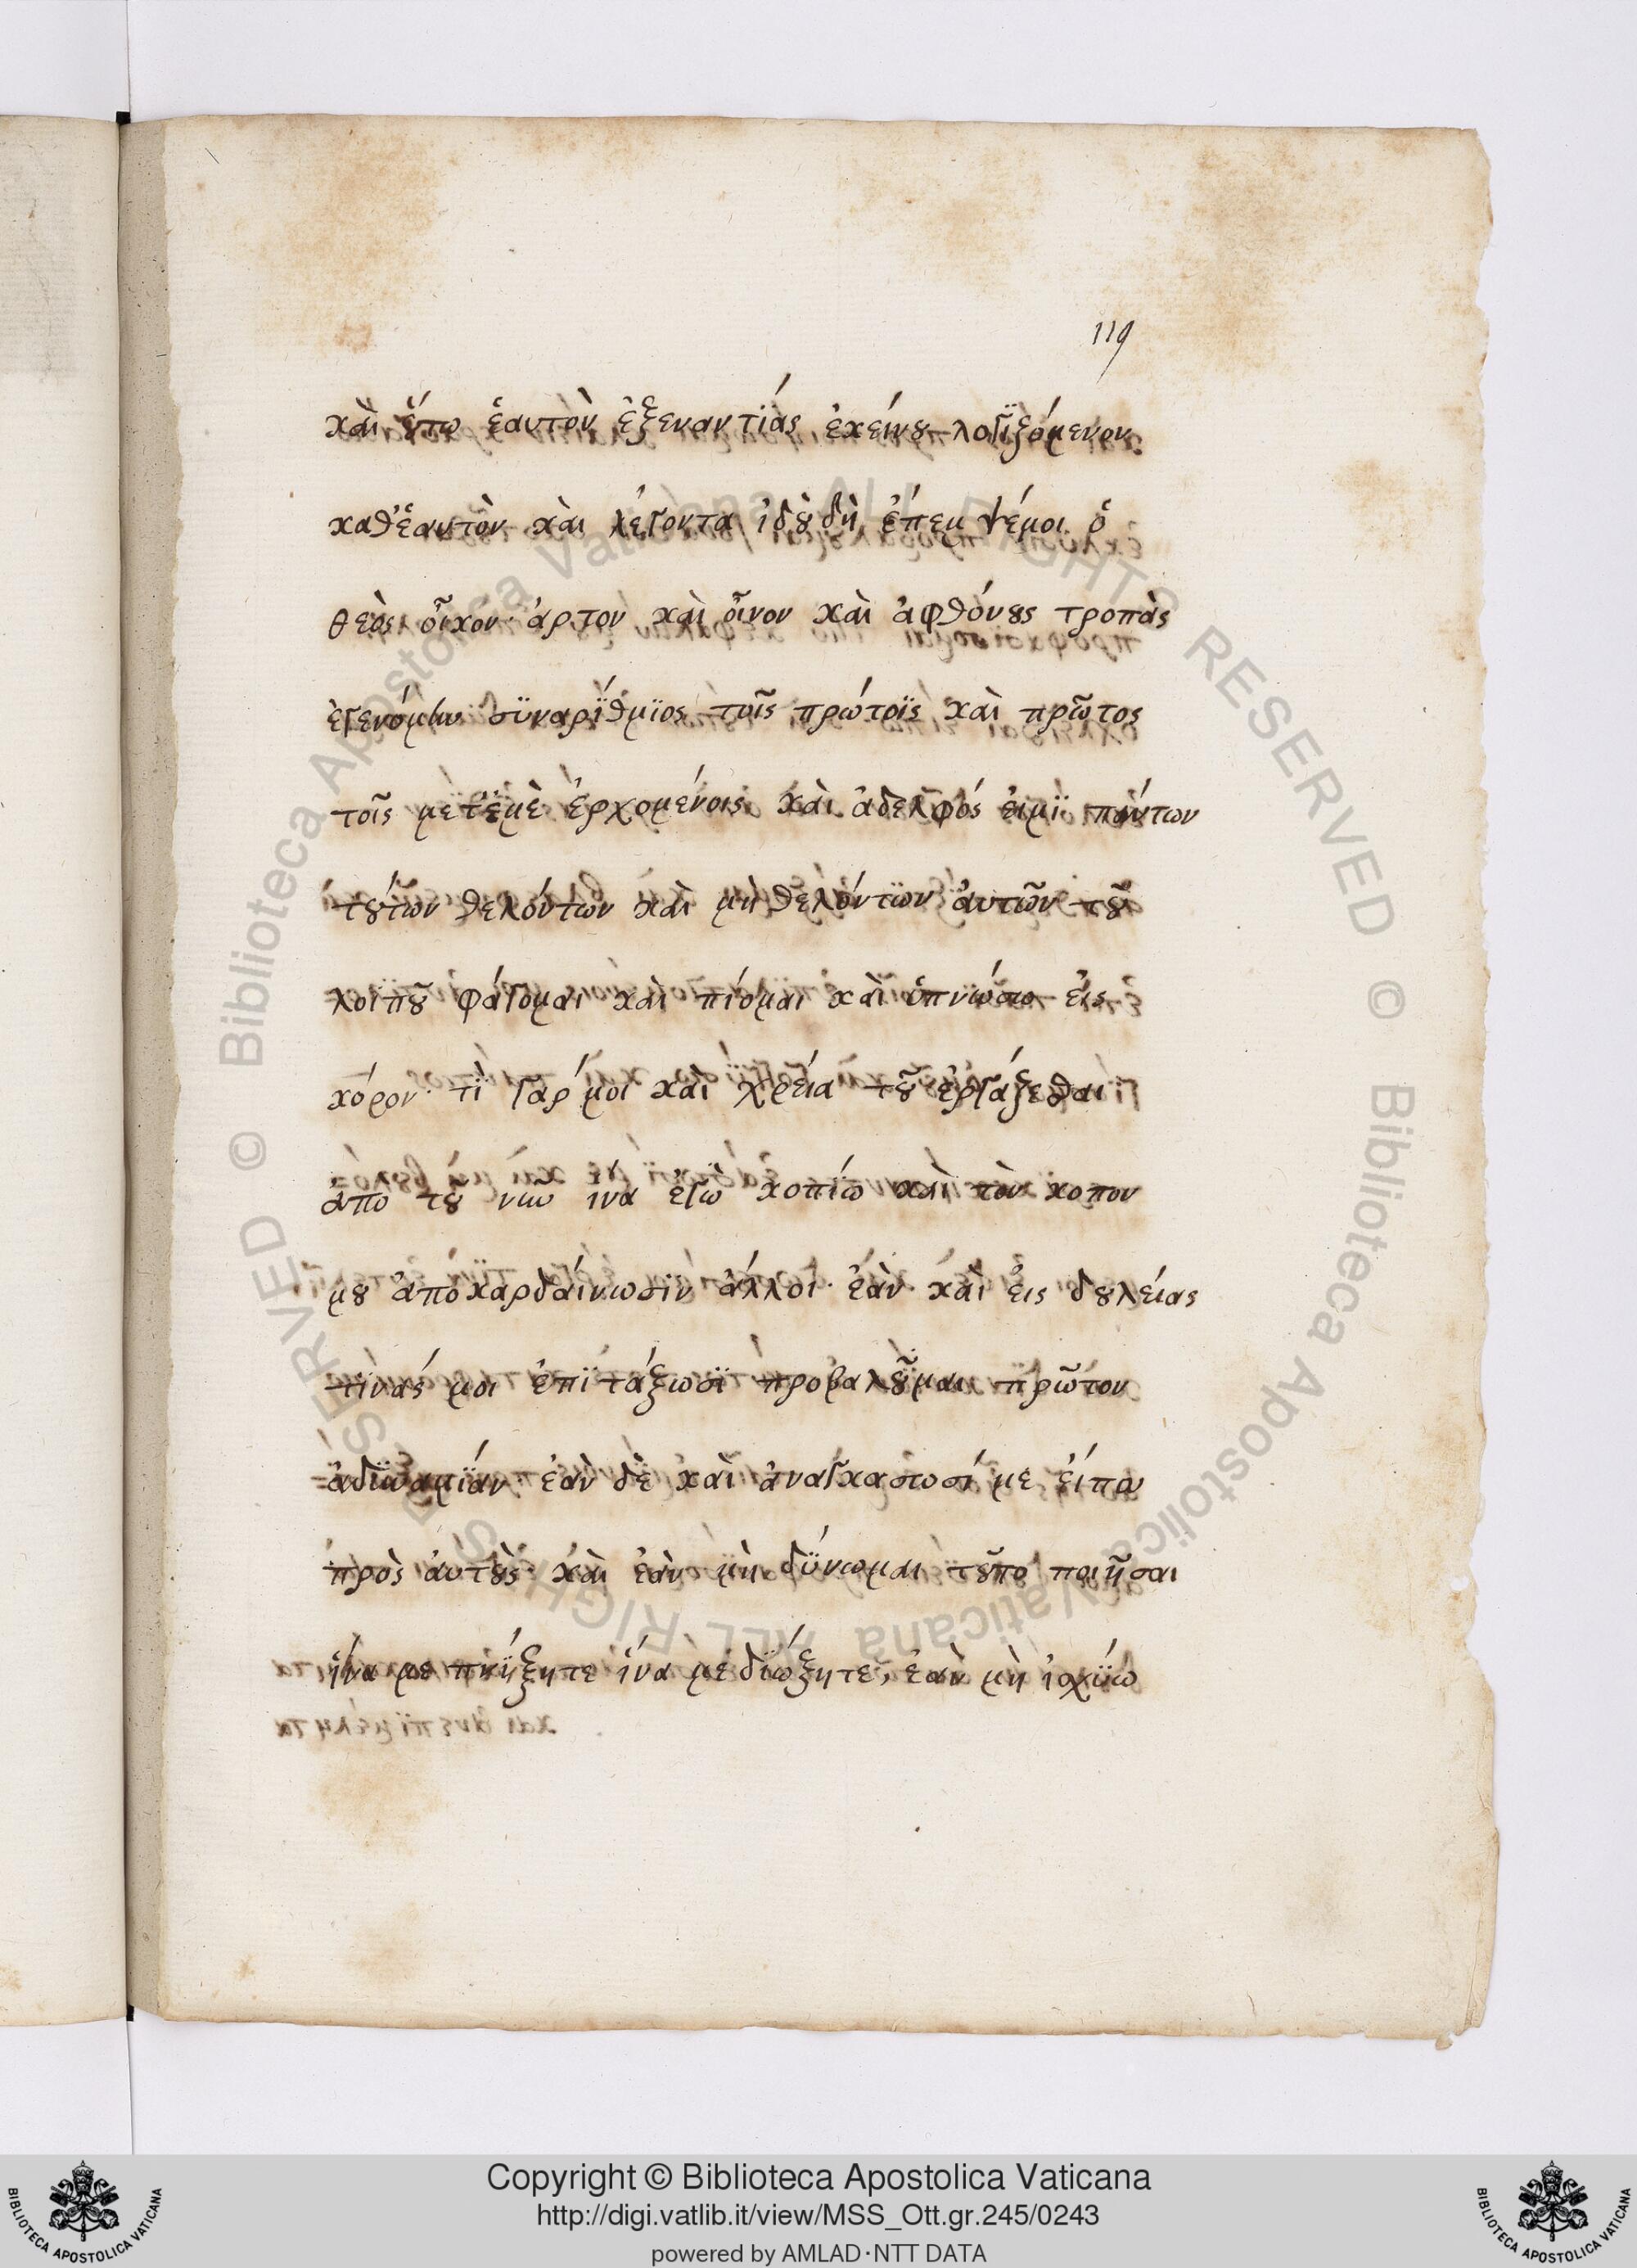 119
καὶ ȣ̔́τω ἑαυτὸν ἐξεναντΐας ἐκείνȣ λογϊζόμενον
καθἑαυτὸν καὶ λέγοντα ἰδȣ̀ δὴ ἔπεμψέμοι ὁ
θεὸς οἶκον· ἄρτον καὶ οἶνον καὶ ἀφθόνȣς τροπὰς
ἐγενόμην συναρΐθμϊος τοῖς πρώτοϊς καὶ πρῶτος
τοῖς μετἐμὲ ἐρχομένοις καὶ ἀδελφός εἰμϊ πάντων
τȣ́των θελόντων καὶ μὴ θελόντων αὐτῶν τȣ͂
λοϊπȣ͂ φάγομαι καὶ πίομαι καὶ ὑπνώσω εἰς
κόρον· τί γάρ μοι καὶ χρεία τȣ͂ ἐργάζεσθαι
ἀπὸ τȣ͂ νῦν ἵνα ἐγὼ κοπϊῶ καὶ τὸν κόπον
μȣ ἀποκαρδαίνωσϊν ἄλλοι· ἐὰν καὶ εἰς δȣλείας
τινάς μοι ἐπϊτάξωσϊ προβαλȣ͂μαι πρῶτον
ἀδϋναμΐαν· ἐὰν δὲ καὶ ἀναγκάσωσί με εἴπω
πρὸς αὐτȣ̀ς καὶ ἐὰν μὴ δύνωμαι τȣ͂το ποιῆσαι
ἵνα με πνήξητε ἵνα μὲ διώξητε, ἐὰν μὴ ἰσχύω
Copyright © Biblioteca Apostolica Vaticana
http://digi.vatlib.it/view/MSS_Ott.gr.245/0243
powered by AMLAD·NTT DATA
BIBLIOTECA APOSTOLICA VATICANA
BIBLIOTECA APOSTOLICA VATICANA
© Biblioteca Apostolica Vaticana ALL RIGHTS RESERVED © Biblioteca Apostolica Vaticana ALL RIGHTS RESERVED